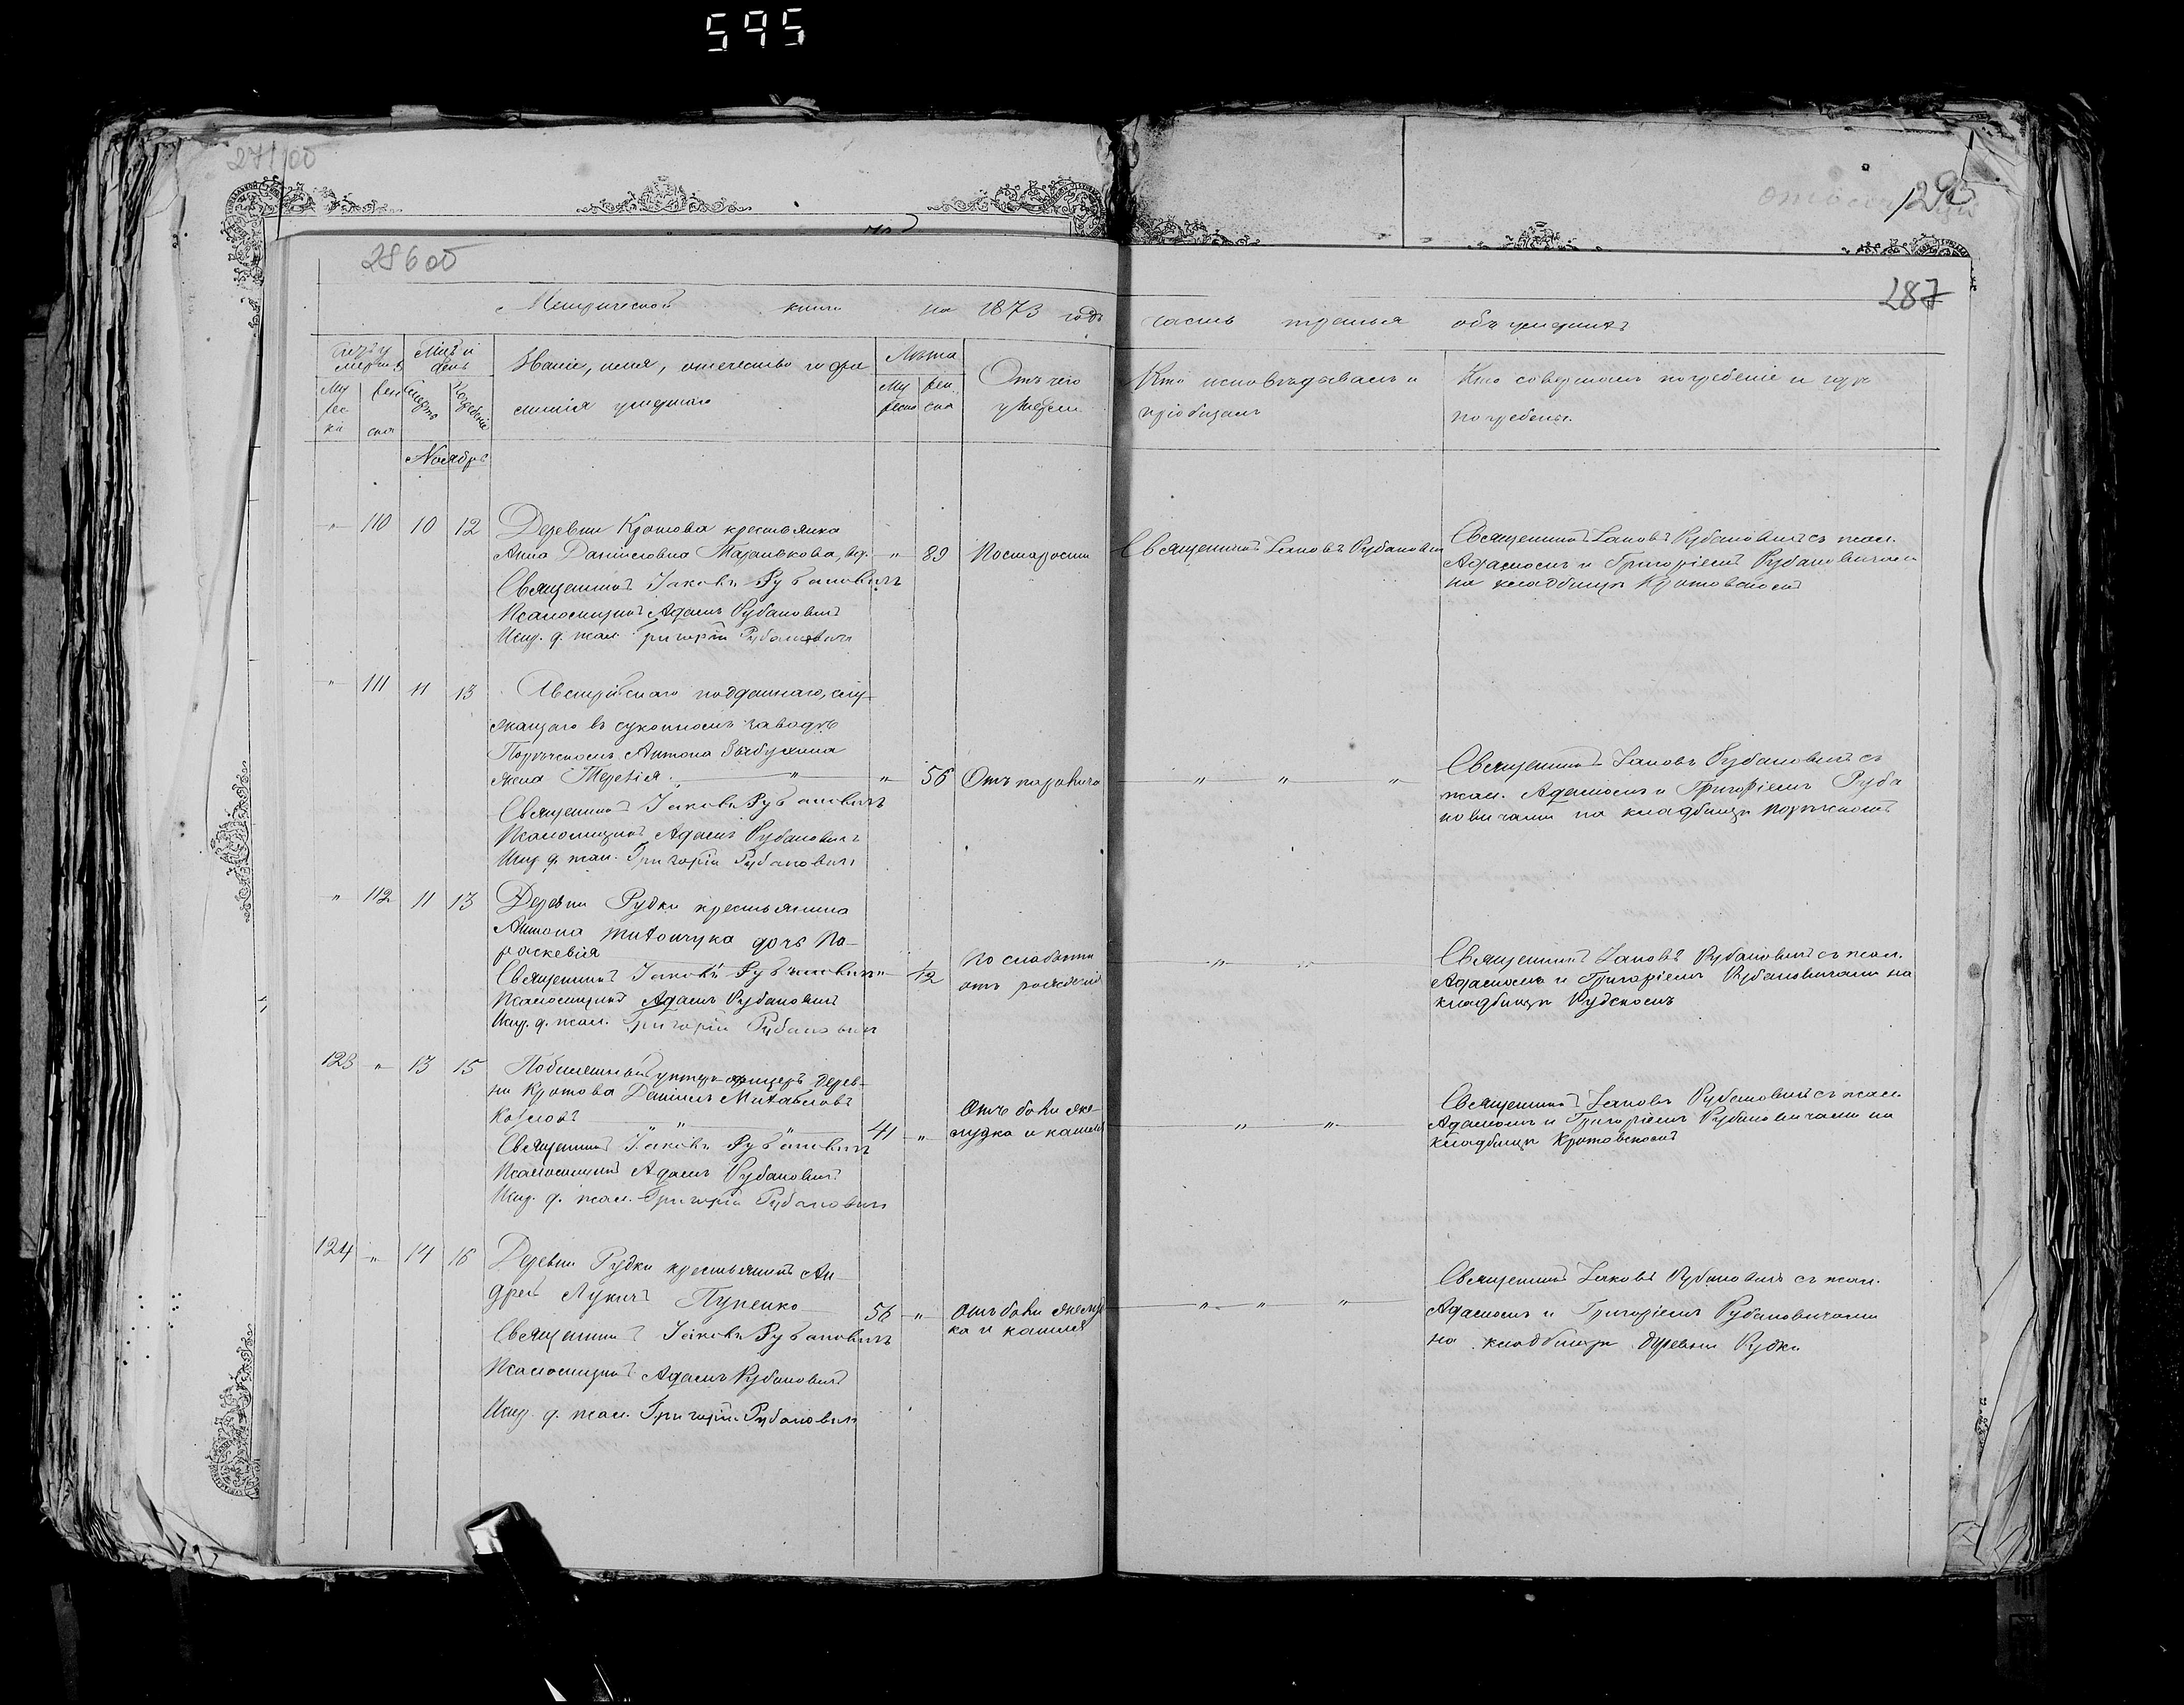 595
271об
293
286об
287
Метрической книги на 1873 годъ часть третья объ умершихъ
Мѣс. и день
Званіе, имя, отечество и фа
милія умершаго
Лѣта
Отъ чего
умерли
Кто исповѣдывалъ и
пріобщалъ
Кто совершалъ погребеніе и гдѣ
погребены.
Му
жес
ка
жен
ска
Смерть
Погребенія
Му
жеска
жен
ска
Ноябрь
" 110 10 12 Деревни Кротова крестьянка
Анна Даниловна , вд. " 89 По старости Священникъ Іаковъ Рубановичъ
Священникъ Іаковъ Рубановичъ
Псаломщикъ Адамъ Рубановичъ
Исп. д. псал. Григорій Рубановичъ
Священникъ Іаковъ Рубановичъ съ псал.
Адамомъ и Григоріемъ Рубановичами
на кладбищѣ Кротовскомъ
" 111 11 13 Австрійскаго подданнаго, слу-
жащаго въ суконномъ заводѣ
Порѣчскомъ Антона
жена Терезія " " 56 " " "
Священникъ Іаковъ Рубановичъ
Псаломщикъ Адамъ Рубановичъ
Исп. д. псал. Григорій Рубановичъ
Священникъ Іаковъ Рубановичъ съ
псал. Адамомъ и Григоріемъ Руба
новичами на кладбищѣ Порѣчскомъ
" 112 11 13 Деревни Рудки крестьянина
Антона дочь Па-
раскевія
Священникъ Іаковъ Рубановичъ " 1/2 По слабости
отъ рожденія " "
Псаломщикъ Адамъ Рубановичъ
Исп. д. псал. Григорій Рубановичъ
Священникъ Іаковъ Рубановичъ съ псал.
Адамомъ и Григоріемъ Рубановичами на
кладбищѣ Рудскомъ
123 " 13 15 унтеръ-офицеръ дерев-
ни Кротова Даніилъ Михайловъ
Козловъ " " 41 " Отъ боли же-
лудка и кашля " "
Священникъ Іаковъ Рубановичъ
Псаломщикъ Адамъ Рубановичъ
Исп. д. псал. Григорій Рубановичъ
Священникъ Іаковъ Рубановичъ съ псал.
Адамомъ и Григоріемъ Рубановичами на
кладбищѣ Кротовскомъ
124 " 14 16 Деревни Рудки крестьянинъ Ан-
дрей Лукичъ Пупенко 56 " Отъ боли желуд
ка и кашля " " "
Священникъ Іаковъ Рубановичъ
Псаломщикъ Адамъ Рубановичъ
Исп. д. псал. Григорій Рубановичъ
Священникъ Іаковъ Рубановичъ съ псал.
Адамомъ и Григоріемъ Рубановичами
на кладбищѣ деревни Рудки